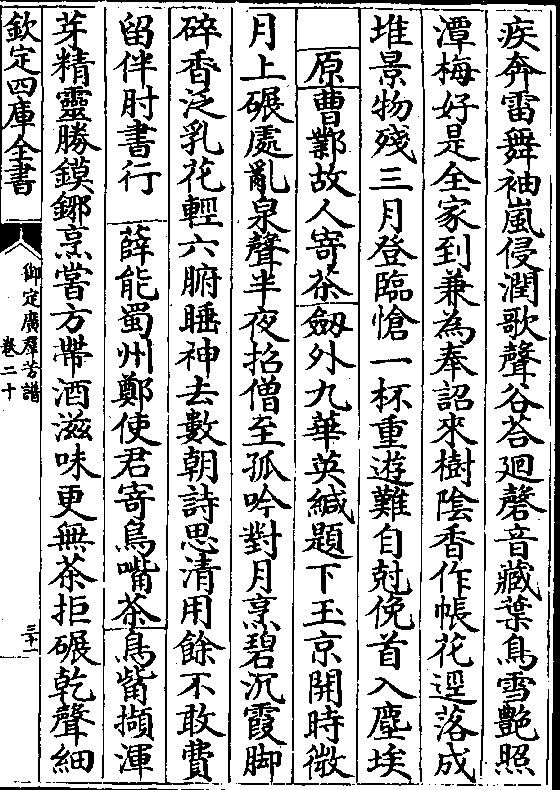 疾奔雷舞袖嵐侵潤歌聲谷荅廻磬音藏葉鳥雪艷照
潭梅好是全家到兼為奉詔來樹陰香作帳花逕落成
堆景物殘三月登臨愴一杯重遊難自尅俛首入塵埃
原曹鄴故人寄茶劒外九華英緘題下玉京開時微
月上碾處亂泉聲半夜招僧至孤吟對月烹碧沉霞脚
碎香泛乳花輕六腑睡神去數朝詩思清用餘不敢費
留伴肘書行 薛能蜀州鄭使君寄鳥嘴茶鳥觜擷渾
芽精靈勝鏌鋣烹嘗方帶酒滋味更無茶拒碾乾聲細
欽定四庫全書
御定廣羣芳譜
卷二十
三十一